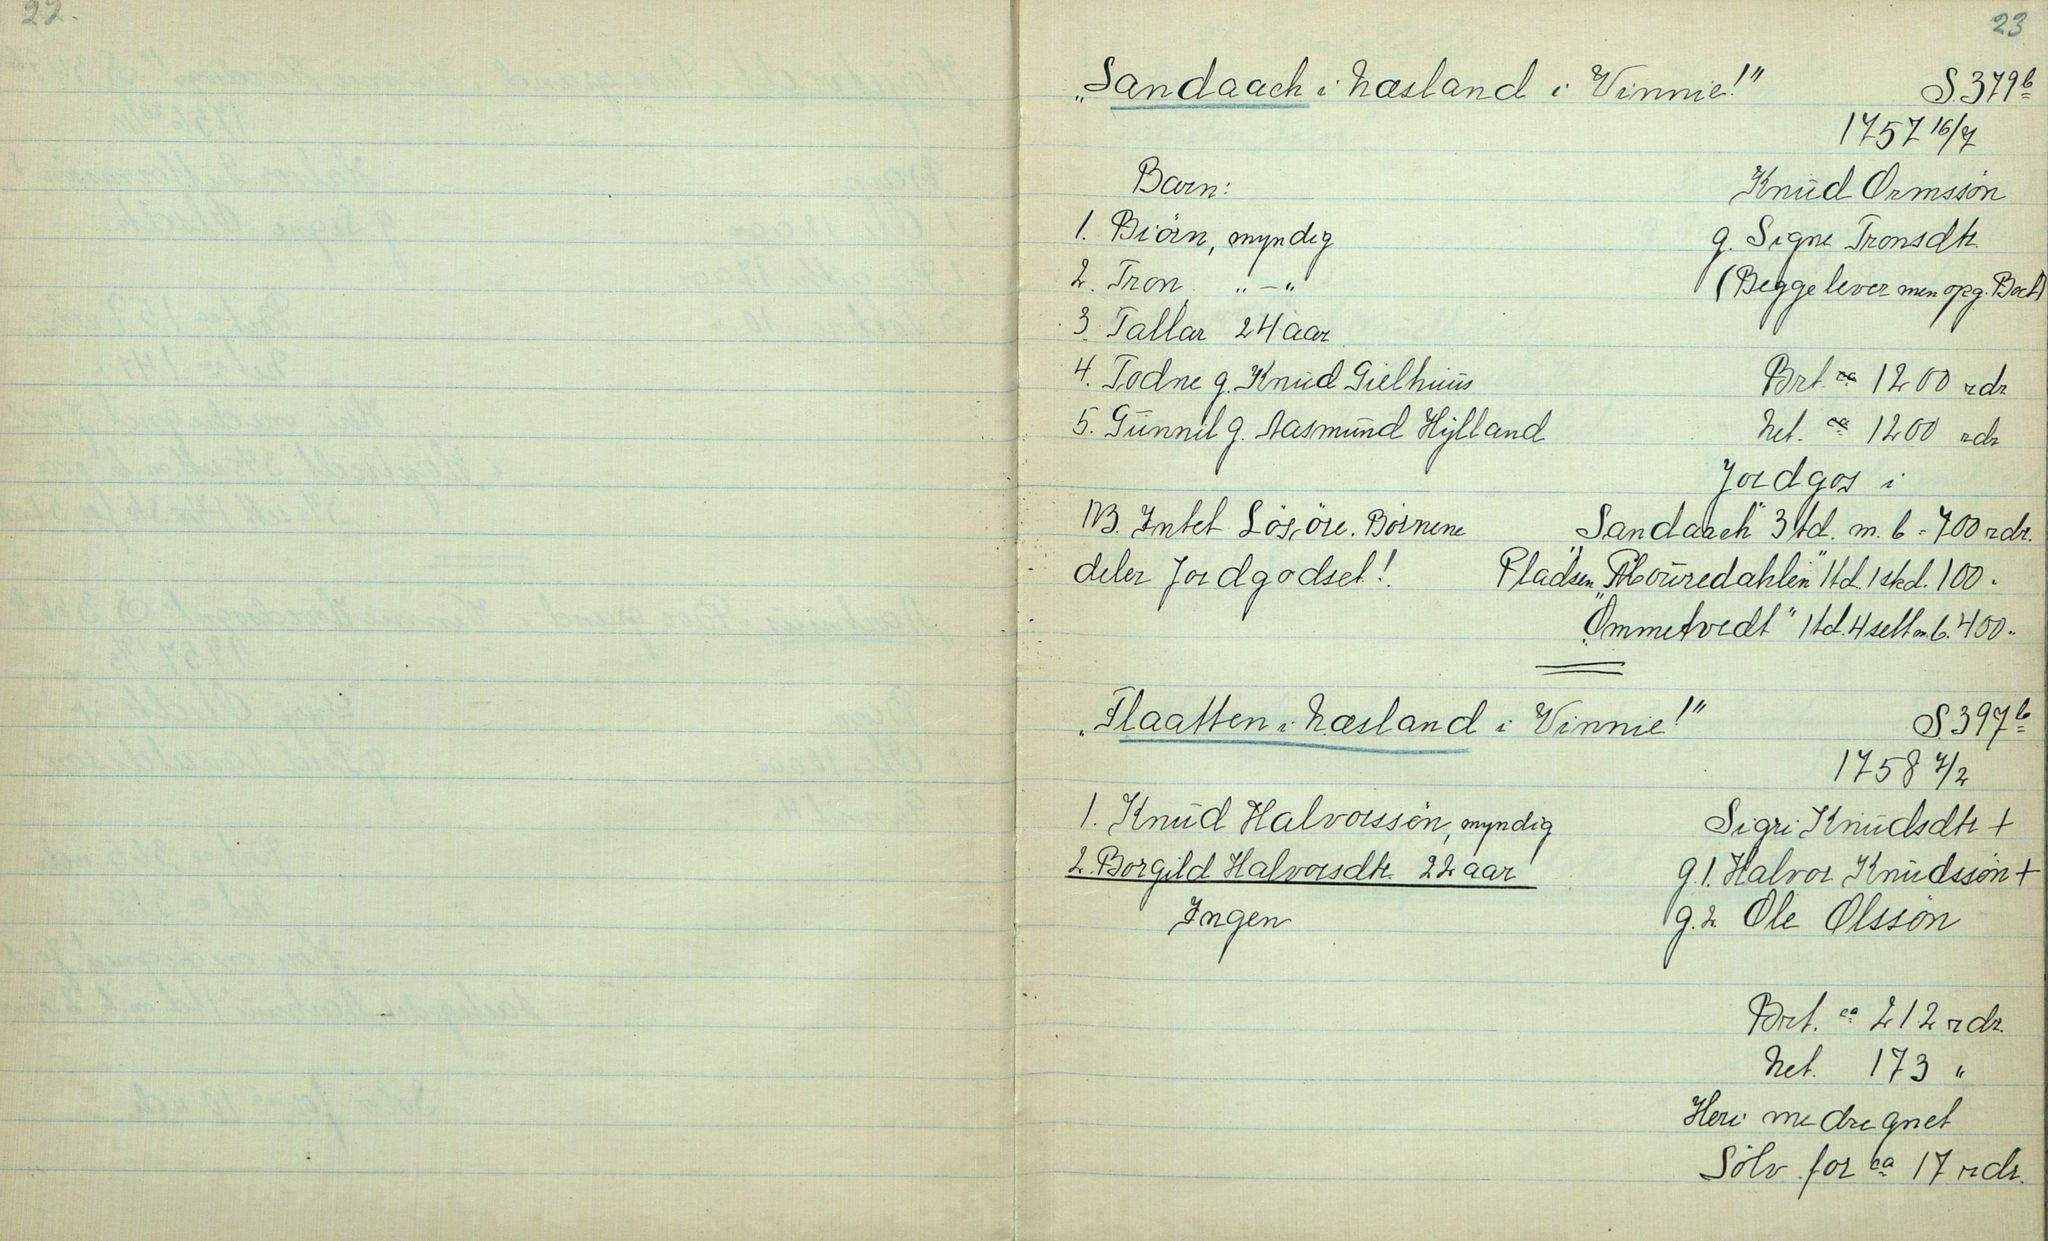 22.
23
„Sandaach i Næsland i Vinnie!" S. 379b
1757 16/7
Barn: Knud Ormssön
1. Biörn, myndig g. Signe Tronsdtr.
2. Tron, „ – „ (Begge lever men opg. Boet)
3. Tallar 24 aar
4. Todne g. Knud Gielhuus Brt. ca 1200 rdr
5. Gunnil g. Aasmund Hylland Net. ca 1200 rdr
Jordgos i
NB. Intet Lösöre. Börnene „Sandaach" 3 td. m. b - 700 rdr.
deler Jordgodset! Pladsen 1 td. 1 skd. 100 -
„Ommetvedt" 1 td. 4 sett m. b. 400 „
„Flaatten i Næsland i Vinnie!" S 397b
1758 7/2
1. Knud Halvorssön, myndig Sigri Knudsdtr +
2. Borgild Halvorsdtr. 22 aar g. 1. Halvor Knudssön +
Ingen g. 2. Ole Olssön
Brt. ca 212 rdr.
Net. 173 „
Heri medregnet
Sölv for ca 17 rdr.